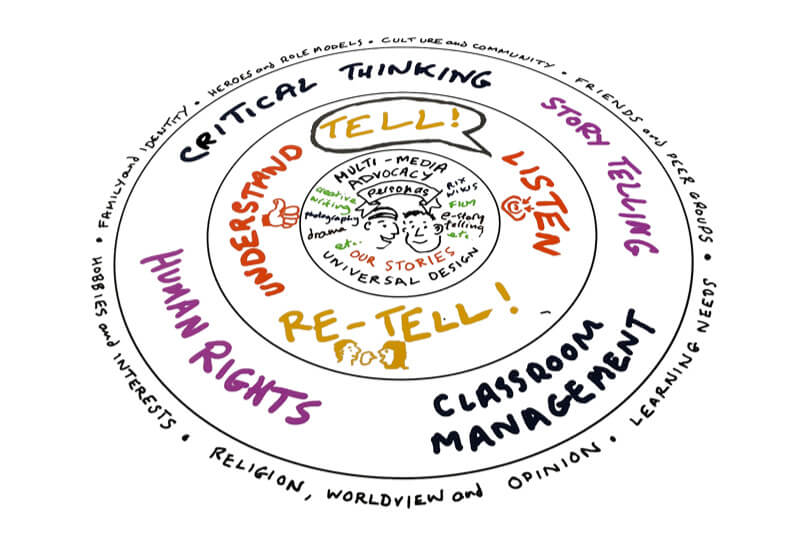 FAMILY and IDENTITY • HEROES and ROLE MODELS • CULTURE and COMMUNITY • FRIENDS and PEER GROUPS •
LEARNING NEEDS •
RELIGION, WORLDVIEW and OPINION •
HOBBIES and INTERESTS •
CRITICAL THINKING
STORY TELLING
CLASSROOM
MANAGEMENT
HUMAN RIGHTS
TELL!
LISTEN
RE-TELL!
UNDERSTAND
MULTI-MEDIA
ADVOCACY
Personas
creative
writing
photography
drama
etc..
FILM
e-story
telling
etc.
OUR STORIES
UNIVERSAL DESIGN